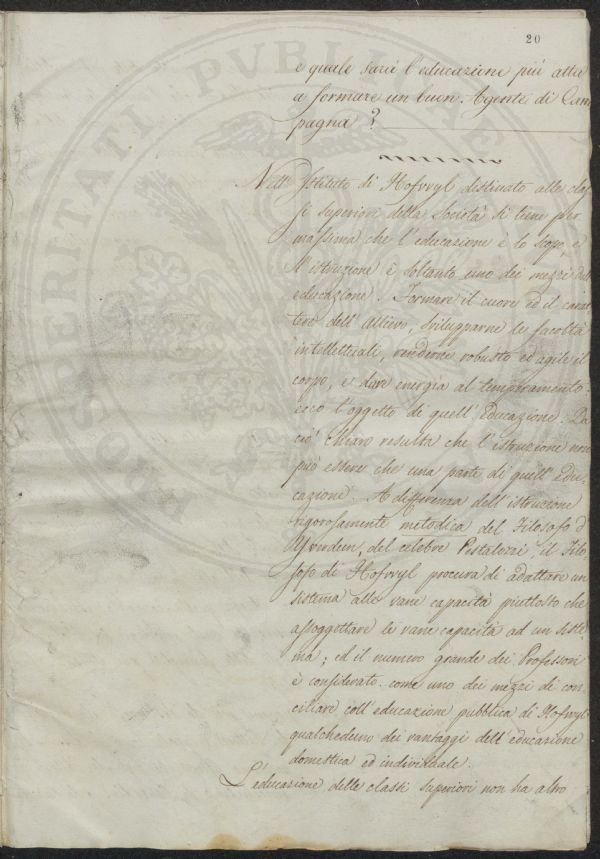 20
e quale sarà l'educazione più atta
a formare un buon Agente di Cam
pagna?
Nell'Istituto di Hofwyl destinato alle clas
si superiori della Società si tiene per
massima che l'educazione è lo scopo, e
l'istruzione è soltanto uno dei mezzi dell'
educazione. Formare il cuore ed il carat
tere dell'Allievo, svilupparne le facoltà
intellettuali, renderne robusto ed agile il
corpo, e dare energia al temperamento:
ecco l'oggetto di quell'Educazione. Da
ciò chiaro resulta che l'istruzione non
può essere che una parte di quell'edu
cazione. A differenza dell'istruzione
rigorosamente metodica del Filosofo d'
Yverdeen, del celebre Pestalozzi, il Filo
sofo di Hofwyl procura di adattare un
sistema alle varie capacità piuttosto che
assoggettare le varie capacità ad un siste
ma; ed il numero grande dei Professori
è considerato come uno dei mezzi di con
ciliare coll'educazione pubblica di Hofwyl
qualcheduno dei vantaggi dell'educazione
domestica ed individuale.
L'educazione delle classi superiori non ha altro
PROSPERITATI PVBLICAE